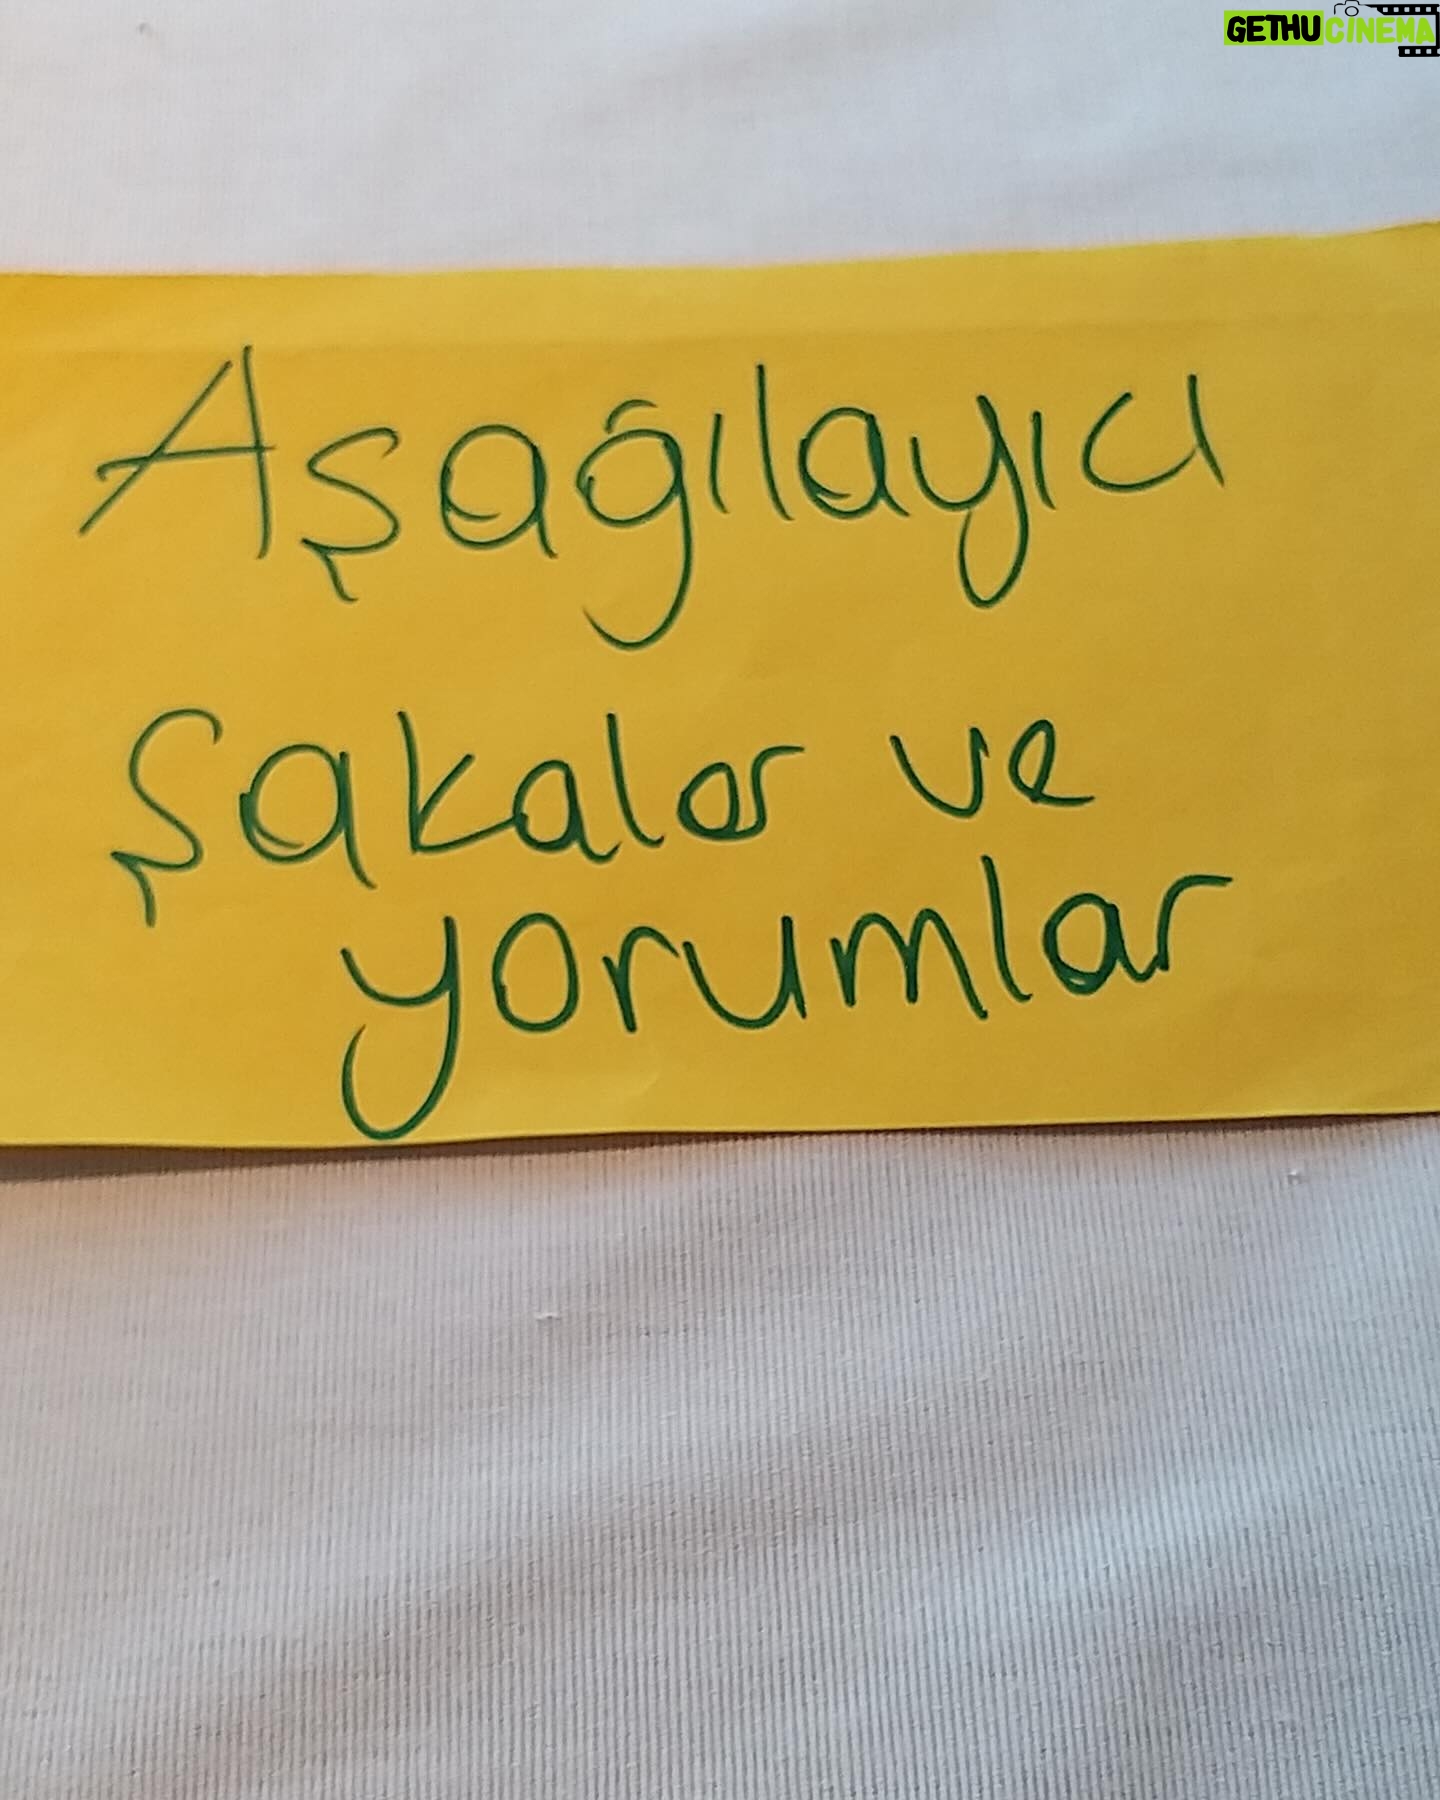 GETHUCINEMA
Aşağılayıcı
Şakalar ve
yorumlar